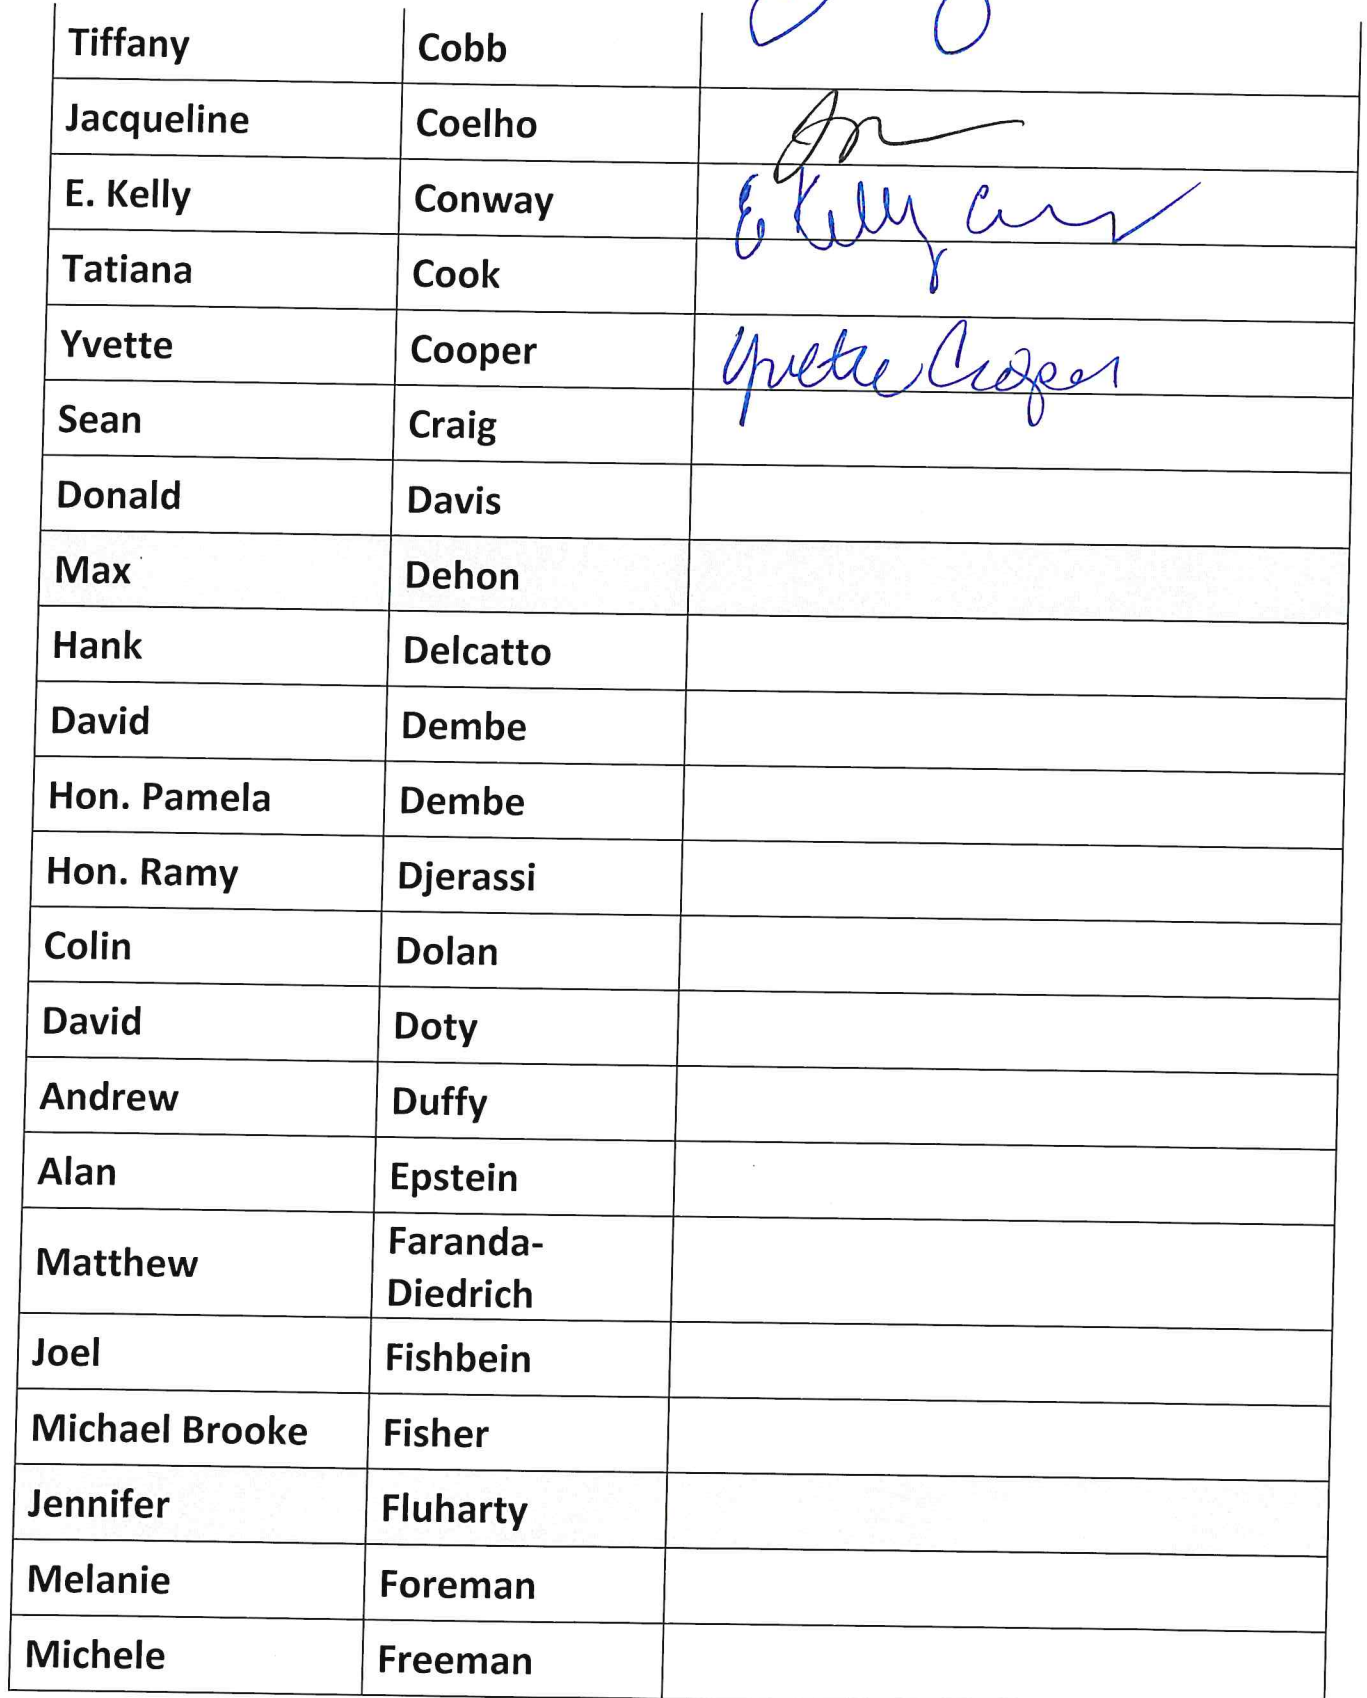 Tiffany Cobb
Jacqueline Coelho
E. Kelly Conway E. Kelly Conway
Tatiana Cook
Yvette Cooper Yvette Cooper
Sean Craig
Donald Davis
Max Dehon
Hank Delcatto
David Dembe
Hon. Pamela Dembe
Hon. Ramy Djerassi
Colin Dolan
David Doty
Andrew Duffy
Alan Epstein
Matthew Faranda-
Diedrich
Joel Fishbein
Michael Brooke Fisher
Jennifer Fluharty
Melanie Foreman
Michele Freeman